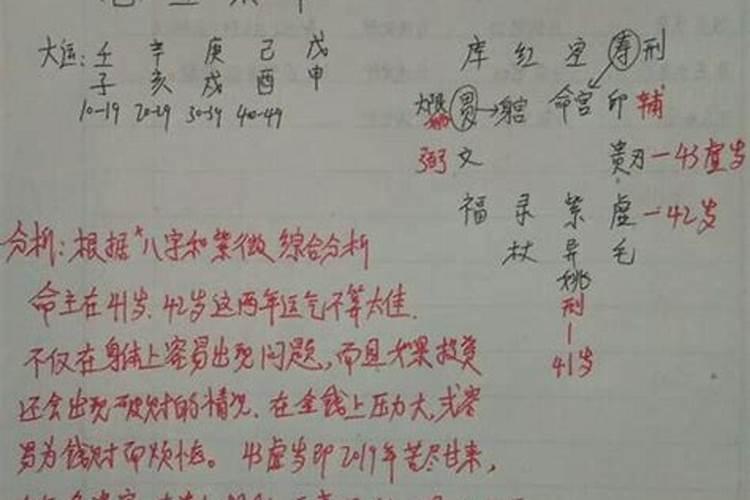 大运: 壬 辛 庚 己 戊
子 亥 戌 酉 申
10-19 20-29 30-39 40-49
库 红 空 寿 刑
大限 昌→身宫 命宫 印 辅
弼 文 贵刃-43虚岁
福 录 紫 虚-42岁
杖 异 毛
姚
刑
41岁
分析:根据"八字和紫微综合分析
命主在41岁、42岁这两年运气不算太佳.
不仅在身体上容易出现问题,而且如果投资
还会出现破财的情况.在金钱上压力大,或容
易为钱财而烦恼。43虚岁即2019年苦尽甘来,